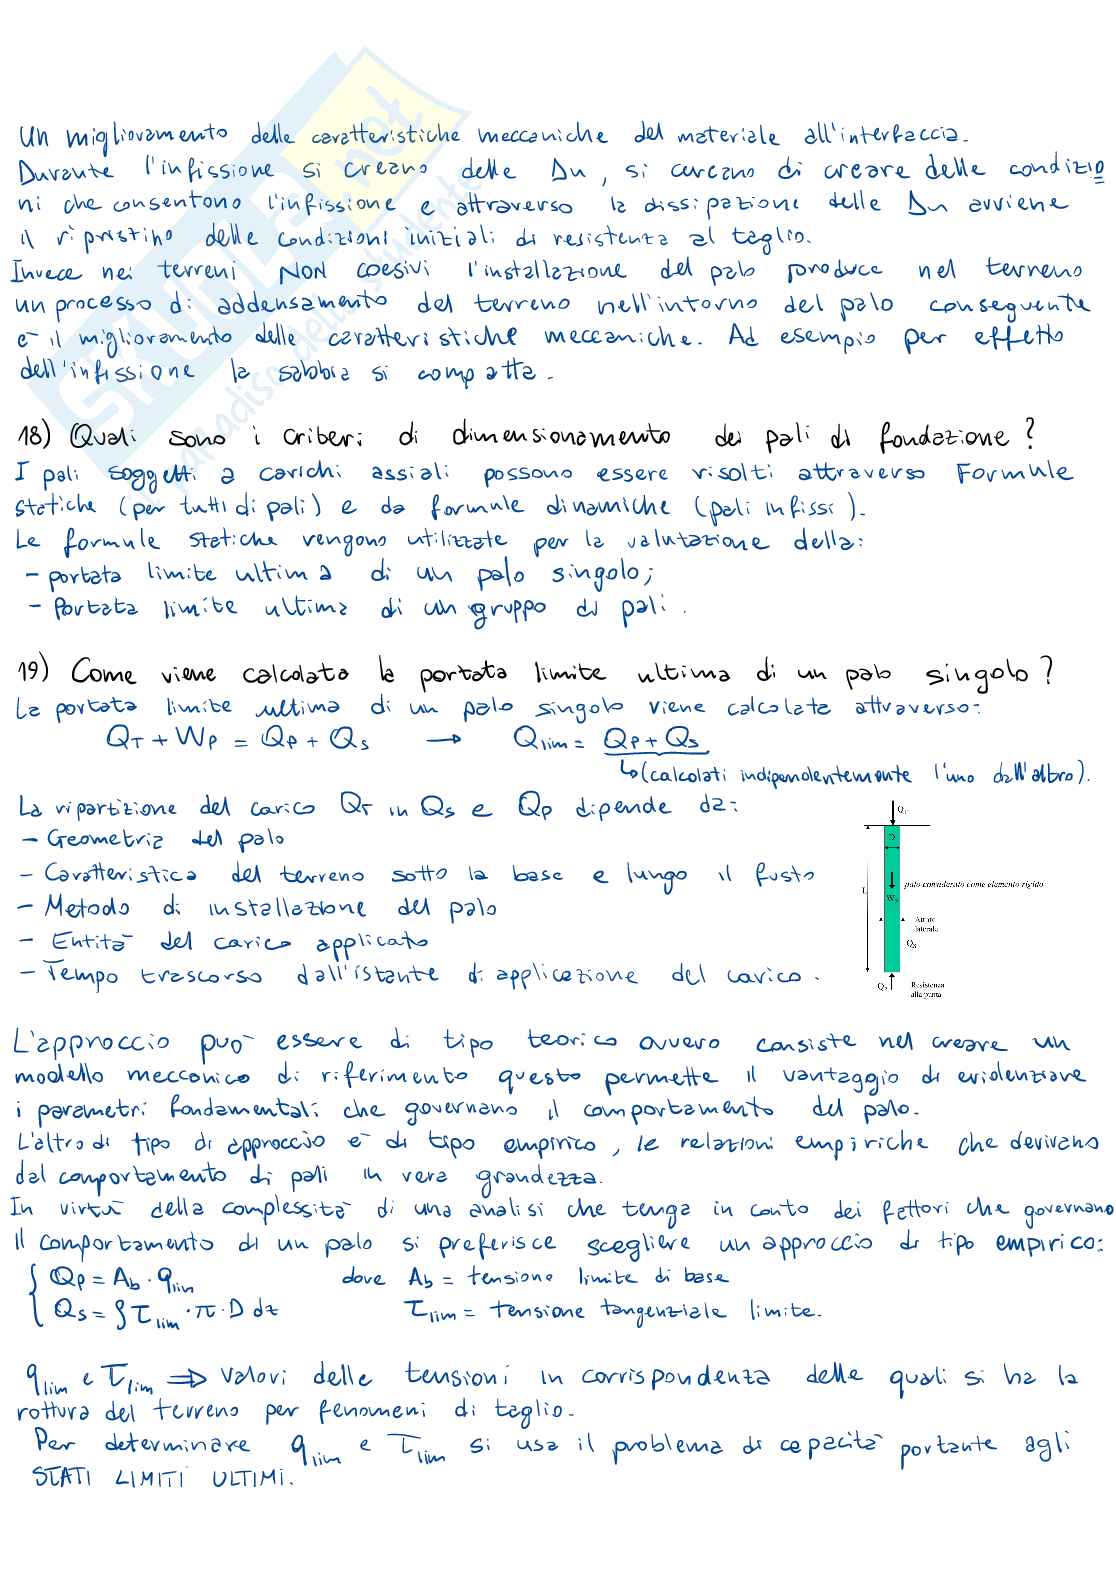 Un miglioramento delle caratteristiche meccaniche del materiale all'interfaccia.
Durante l'infissione si creano delle Δu, si cercano di creare delle condizio
ni che consentono l'infissione e attraverso la dissipazione delle Δu avviene
il ripristino delle condizioni iniziali di resistenza al taglio.
Invece nei terreni NON coesivi l'installazione del palo produce nel terreno
un processo di addensamento del terreno nell'intorno del palo conseguente
è il miglioramento delle caratteristiche meccaniche. Ad esempio per effetto
dell'infissione la sabbia si compatta.
18) Quali sono i criteri di dimensionamento dei pali di fondazione?
I pali soggetti a carichi assiali possono essere risolti attraverso Formule
statiche (per tutti di pali) e da formule dinamiche (pali infissi).
Le formule statiche vengono utilizzate per la valutazione della:
- portata limite ultima di un palo singolo;
- Portata limite ultima di un gruppo di pali.
19) Come viene calcolata la portata limite ultima di un palo singolo?
La portata limite ultima di un palo singolo viene calcolata attraverso:
QT + WP = QP + QS → Qlim = QP + QS
↳ (calcolati indipendentemente l'uno dall'altro).
La ripartizione del carico QT in QS e QP dipende da:
- Geometria del palo
- Caratteristica del terreno sotto la base e lungo il fusto
- Metodo di installazione del palo
- Entità del carico applicato
- Tempo trascorso dall'istante di applicazione del carico.
QT
D
palo considerato come elemento rigido
L
WP
Attrito
laterale
QS
QP
Resistenza
alla punta
L'approccio può essere di tipo teorico ovvero consiste nel creare un
modello meccanico di riferimento questo permette il vantaggio di evidenziare
i parametri fondamentali che governano il comportamento del palo.
L'altro di tipo di approccio è di tipo empirico, le relazioni empiriche che derivano
dal comportamento di pali in vera grandezza.
In virtù della complessità di una analisi che tenga in conto dei fattori che governano
il comportamento di un palo si preferisce scegliere un approccio di tipo empirico:
QP = Ab · qlim dove Ab = tensione limite di base
QS = ∫ τlim · π · D dz τlim = tensione tangenziale limite.
qlim e τlim ⇒ valori delle tensioni in corrispondenza delle quali si ha la
rottura del terreno per fenomeni di taglio.
Per determinare qlim e τlim si usa il problema di capacità portante agli
STATI LIMITI ULTIMI.